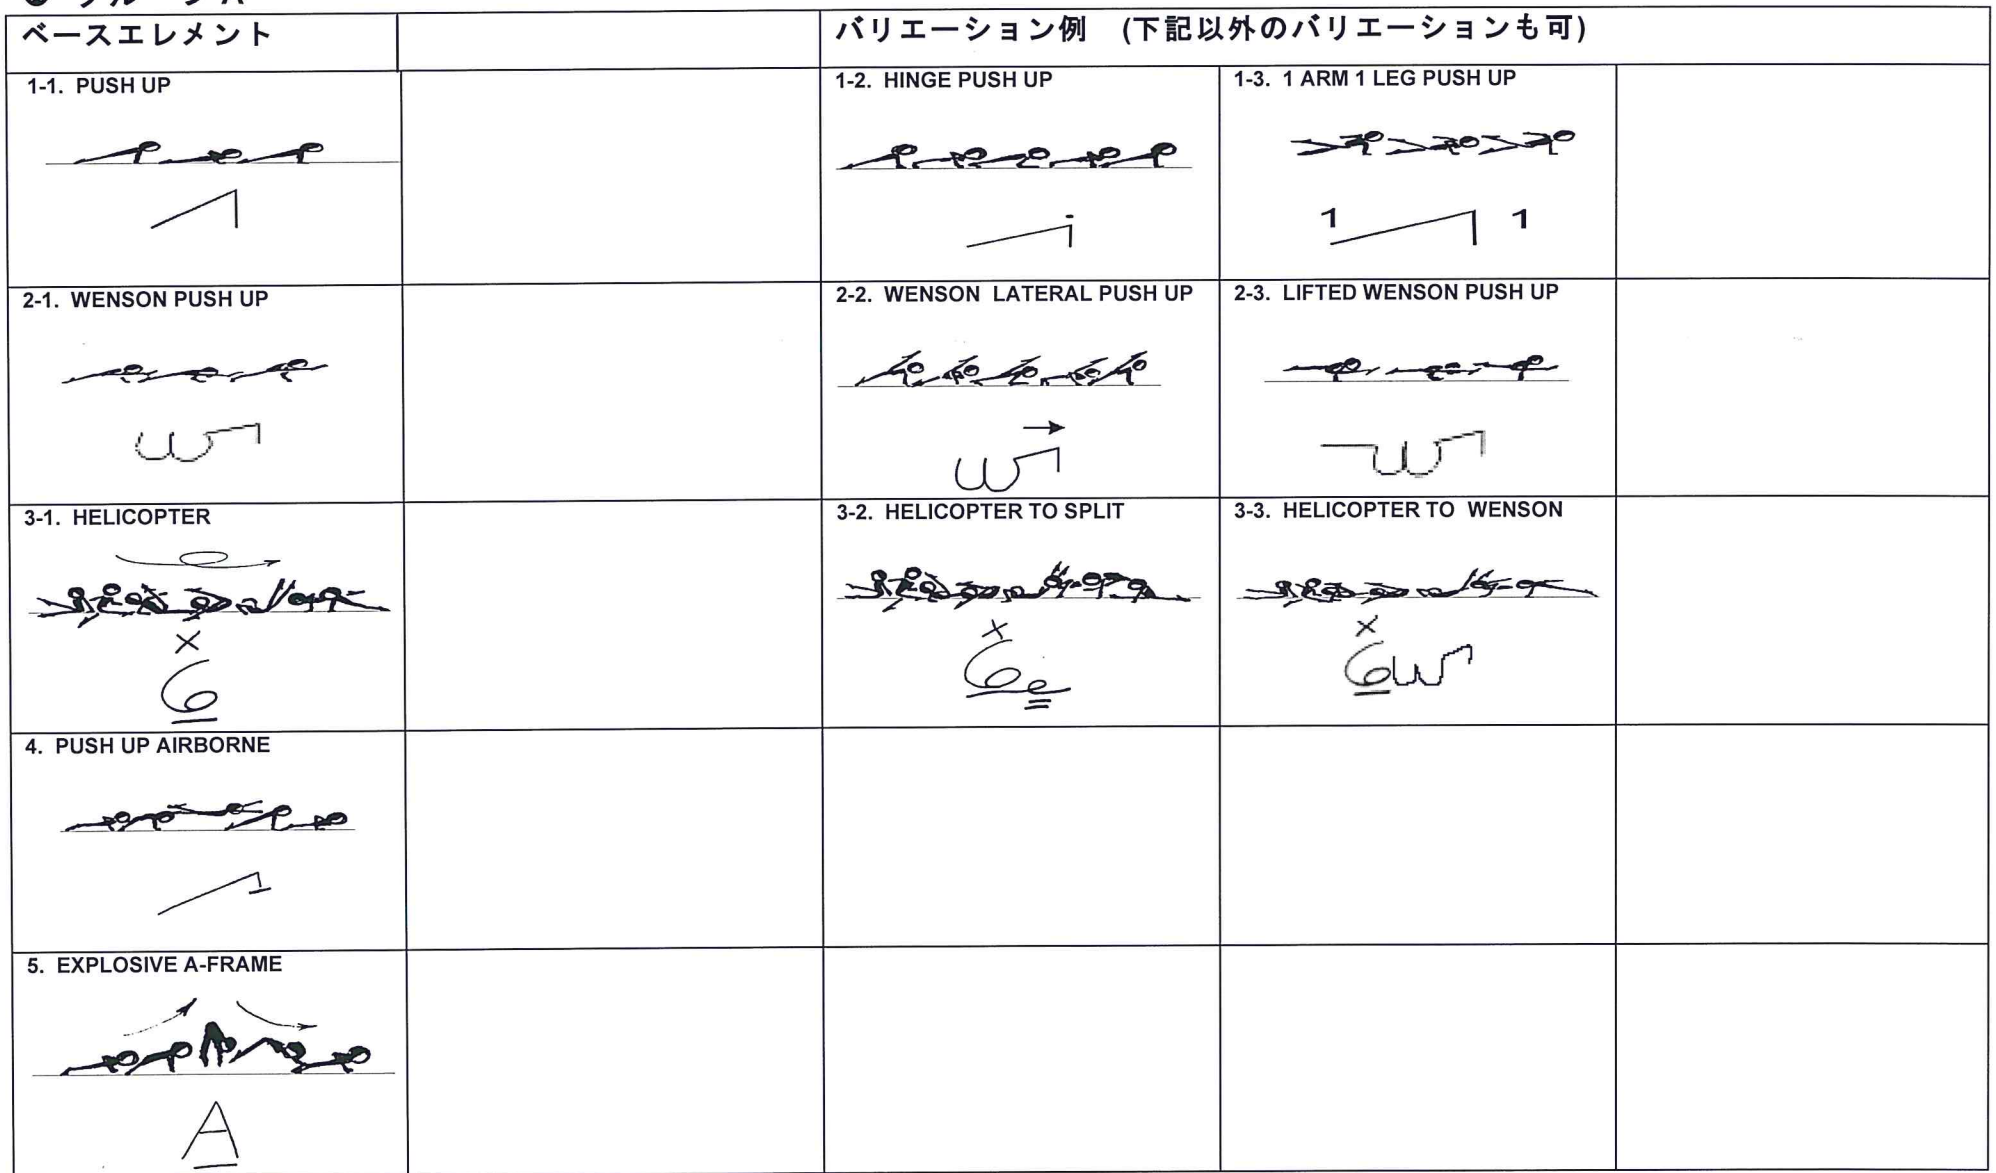 ● グループ A
ベースエレメント
バリエーション例 (下記以外のバリエーションも可)
1-1. PUSH UP
1-2. HINGE PUSH UP
1-3. 1 ARM 1 LEG PUSH UP
1 1
2-1. WENSON PUSH UP
2-2. WENSON LATERAL PUSH UP
2-3. LIFTED WENSON PUSH UP
3-1. HELICOPTER
3-2. HELICOPTER TO SPLIT
3-3. HELICOPTER TO WENSON
4. PUSH UP AIRBORNE
5. EXPLOSIVE A-FRAME
A